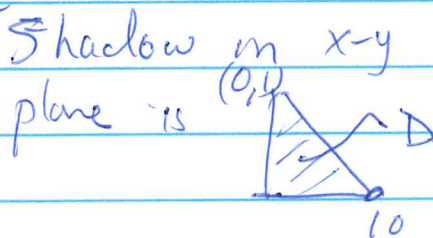 Shadow in x-y
plane is (0,1)
D
10